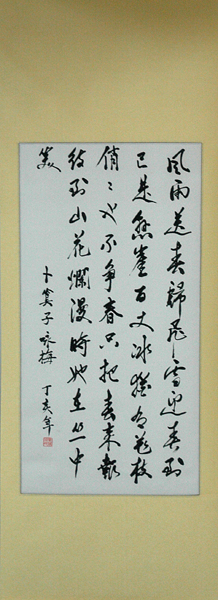 风雨送春归飞雪迎春到
已是悬崖百丈冰犹有花枝
俏俏也不争春只把春来报
待到山花烂漫时她在丛中
笑
卜算子咏梅
丁亥年